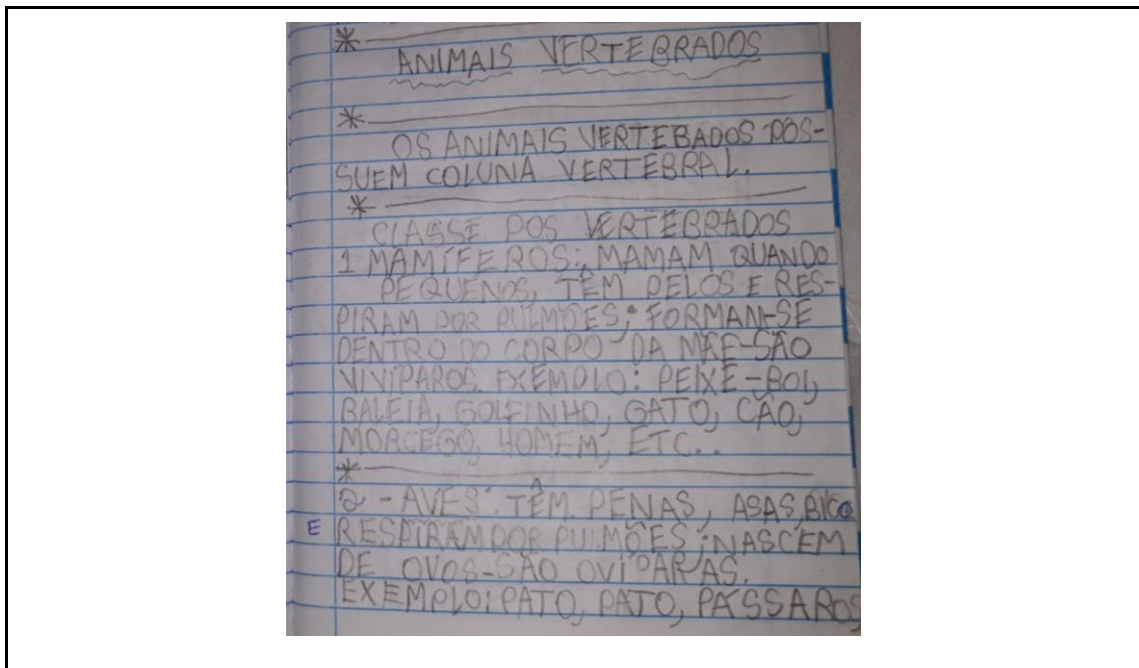 ANIMAIS VERTEBRADOS
OS ANIMAIS VERTEBADOS POS-
SUEM COLUNA VERTEBRAL.
CLASSE DOS VERTEBRADOS
1 MAMÍFEROS: MAMAM QUANDO
PEQUENOS, TÊM PELOS E RES-
PIRAM POR PULMÕES; FORMAM-SE
DENTRO DO CORPO DA MÃE-SÃO
VIVÍPAROS. EXEMPLO: PEIXE-BOI,
BALEIA, GOLFINHO, GATO, CÃO,
MORCEGO, HOMEM, ETC..
2 - AVES: TÊM PENAS, ASAS, BICO
E RESPIRAM POR PULMÕES; NASCEM
DE OVOS-SÃO OVÍPARAS.
EXEMPLO: PATO, PATO, PÁSSAROS,